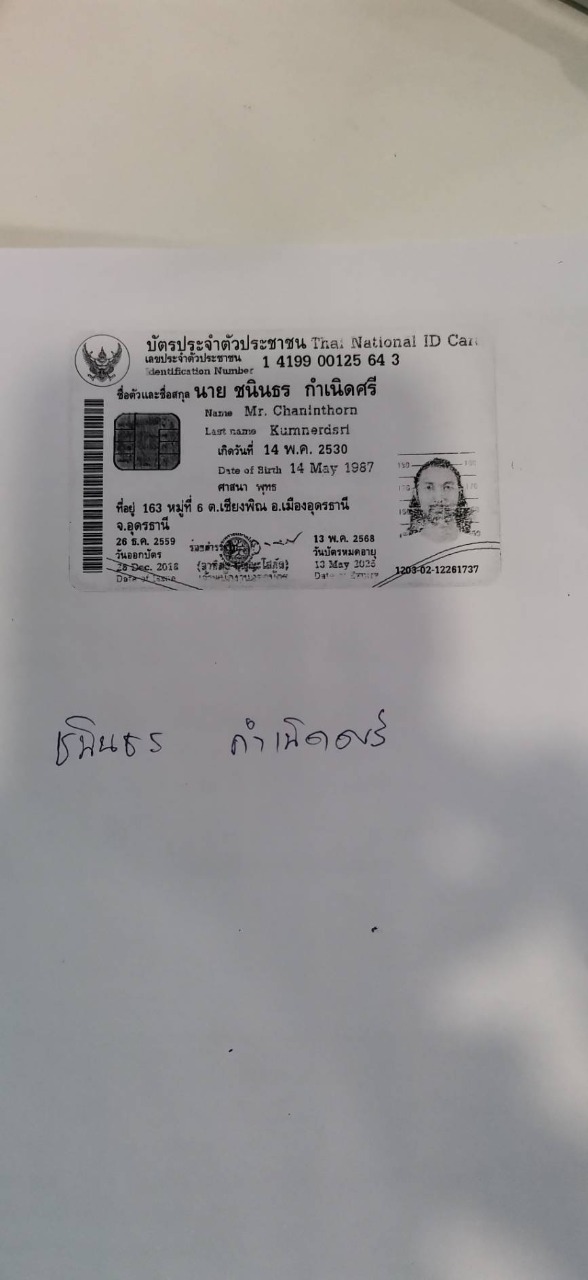 บัตรประจำตัวประชาชน Thai National ID Card
เลขประจำตัวประชาชน 1 4199 00125 64 3
Identification Number
ชื่อตัวและชื่อสกุล นาย ชนินธร กำเนิดศรี
Name Mr. Chaninthorn
Last name Kumnerdsri
เกิดวันที่ 14 พ.ค. 2530
Date of Birth 14 May 1987
ศาสนา พุทธ
ที่อยู่ 163 หมู่ที่ 6 ต.เชียงพิณ อ.เมืองอุดรธานี
จ.อุดรธานี
26 ธ.ค. 2559
วันออกบัตร
Dec. 2016
Date of Issue
13 พ.ค. 2568
วันบัตรหมดอายุ
13 May 2025
Date of Expiry
1203-02-12261737
ชนินธร กำเนิดศรี